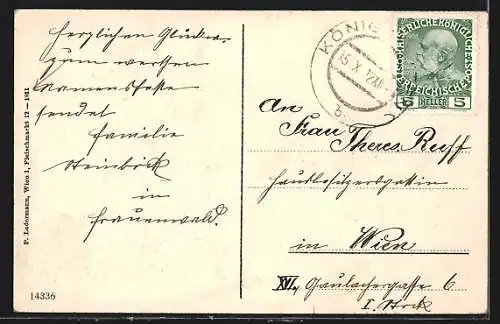 Herzlichen Glückw.
zum werthen
Namensfeste
sendet
Familie
Steinböck
in
Frauenwald.
P. Ledermann, Wien I, Fleischmarkt 12 — 1911
14336
KÖNIG
15 X
KAISERLICHE KÖNIGLICHE ÖSTERREICHISCHE
5 HELLER 5
An
Frau Theres Ruff
Hausbesitzersgattin
in Wien
XVI, Gaulachergasse 6
I. Stock